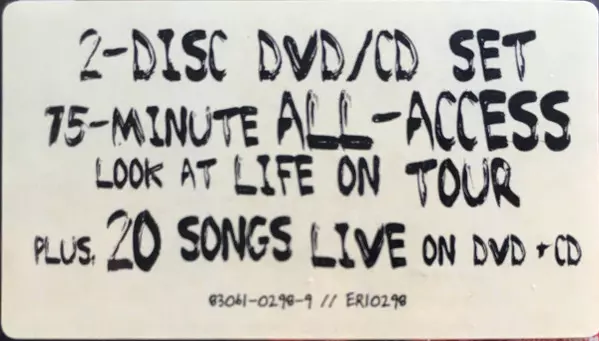 2-DISC DVD/CD SET
75-MINUTE ALL-ACCESS
LOOK AT LIFE ON TOUR
PLUS, 20 SONGS LIVE ON DVD + CD
83061-0298-9 // ER10298